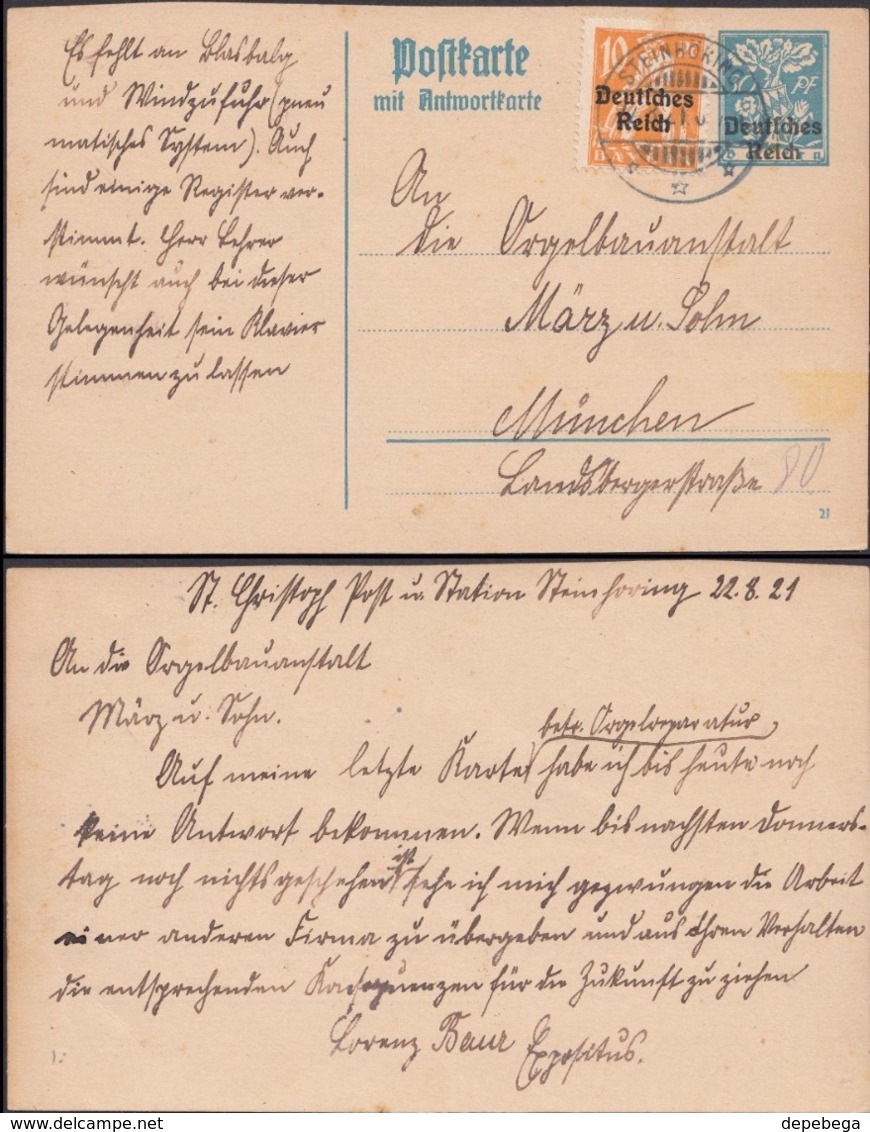 Es fehlt an Blasbalg
und Windzufuhr (pneu
matisches System). Auch
sind einige Register ver-
stimmt. Herr Lehrer
wünscht auch bei dieser
Gelegenheit sein Klavier
stimmen zu lassen
Postkarte
mit Antwortkarte
10
Deutsches
Reich
STEINHÖRING
30 PF
Deutsches
Reich
An
die Orgelbauanstalt
März u. Sohn
München
Landsbergerstraße 80
21
St. Christoph Post u. Station Steinhöring 22.8.21
An die Orgelbauanstalt
März u. Sohn.
betr. Orgelreparatur
Auf meine letzte Karte habe ich bis heute noch
keine Antwort bekommen. Wenn bis nächsten Donners-
tag noch nichts geschehen ist sehe ich mich gezwungen die Arbeit
einer anderen Firma zu übergeben und aus Ihren Verhalten
die entsprechenden Konsequenzen für die Zukunft zu ziehen
Lorenz Baur Expositus.
www.delcampe.net
depebega